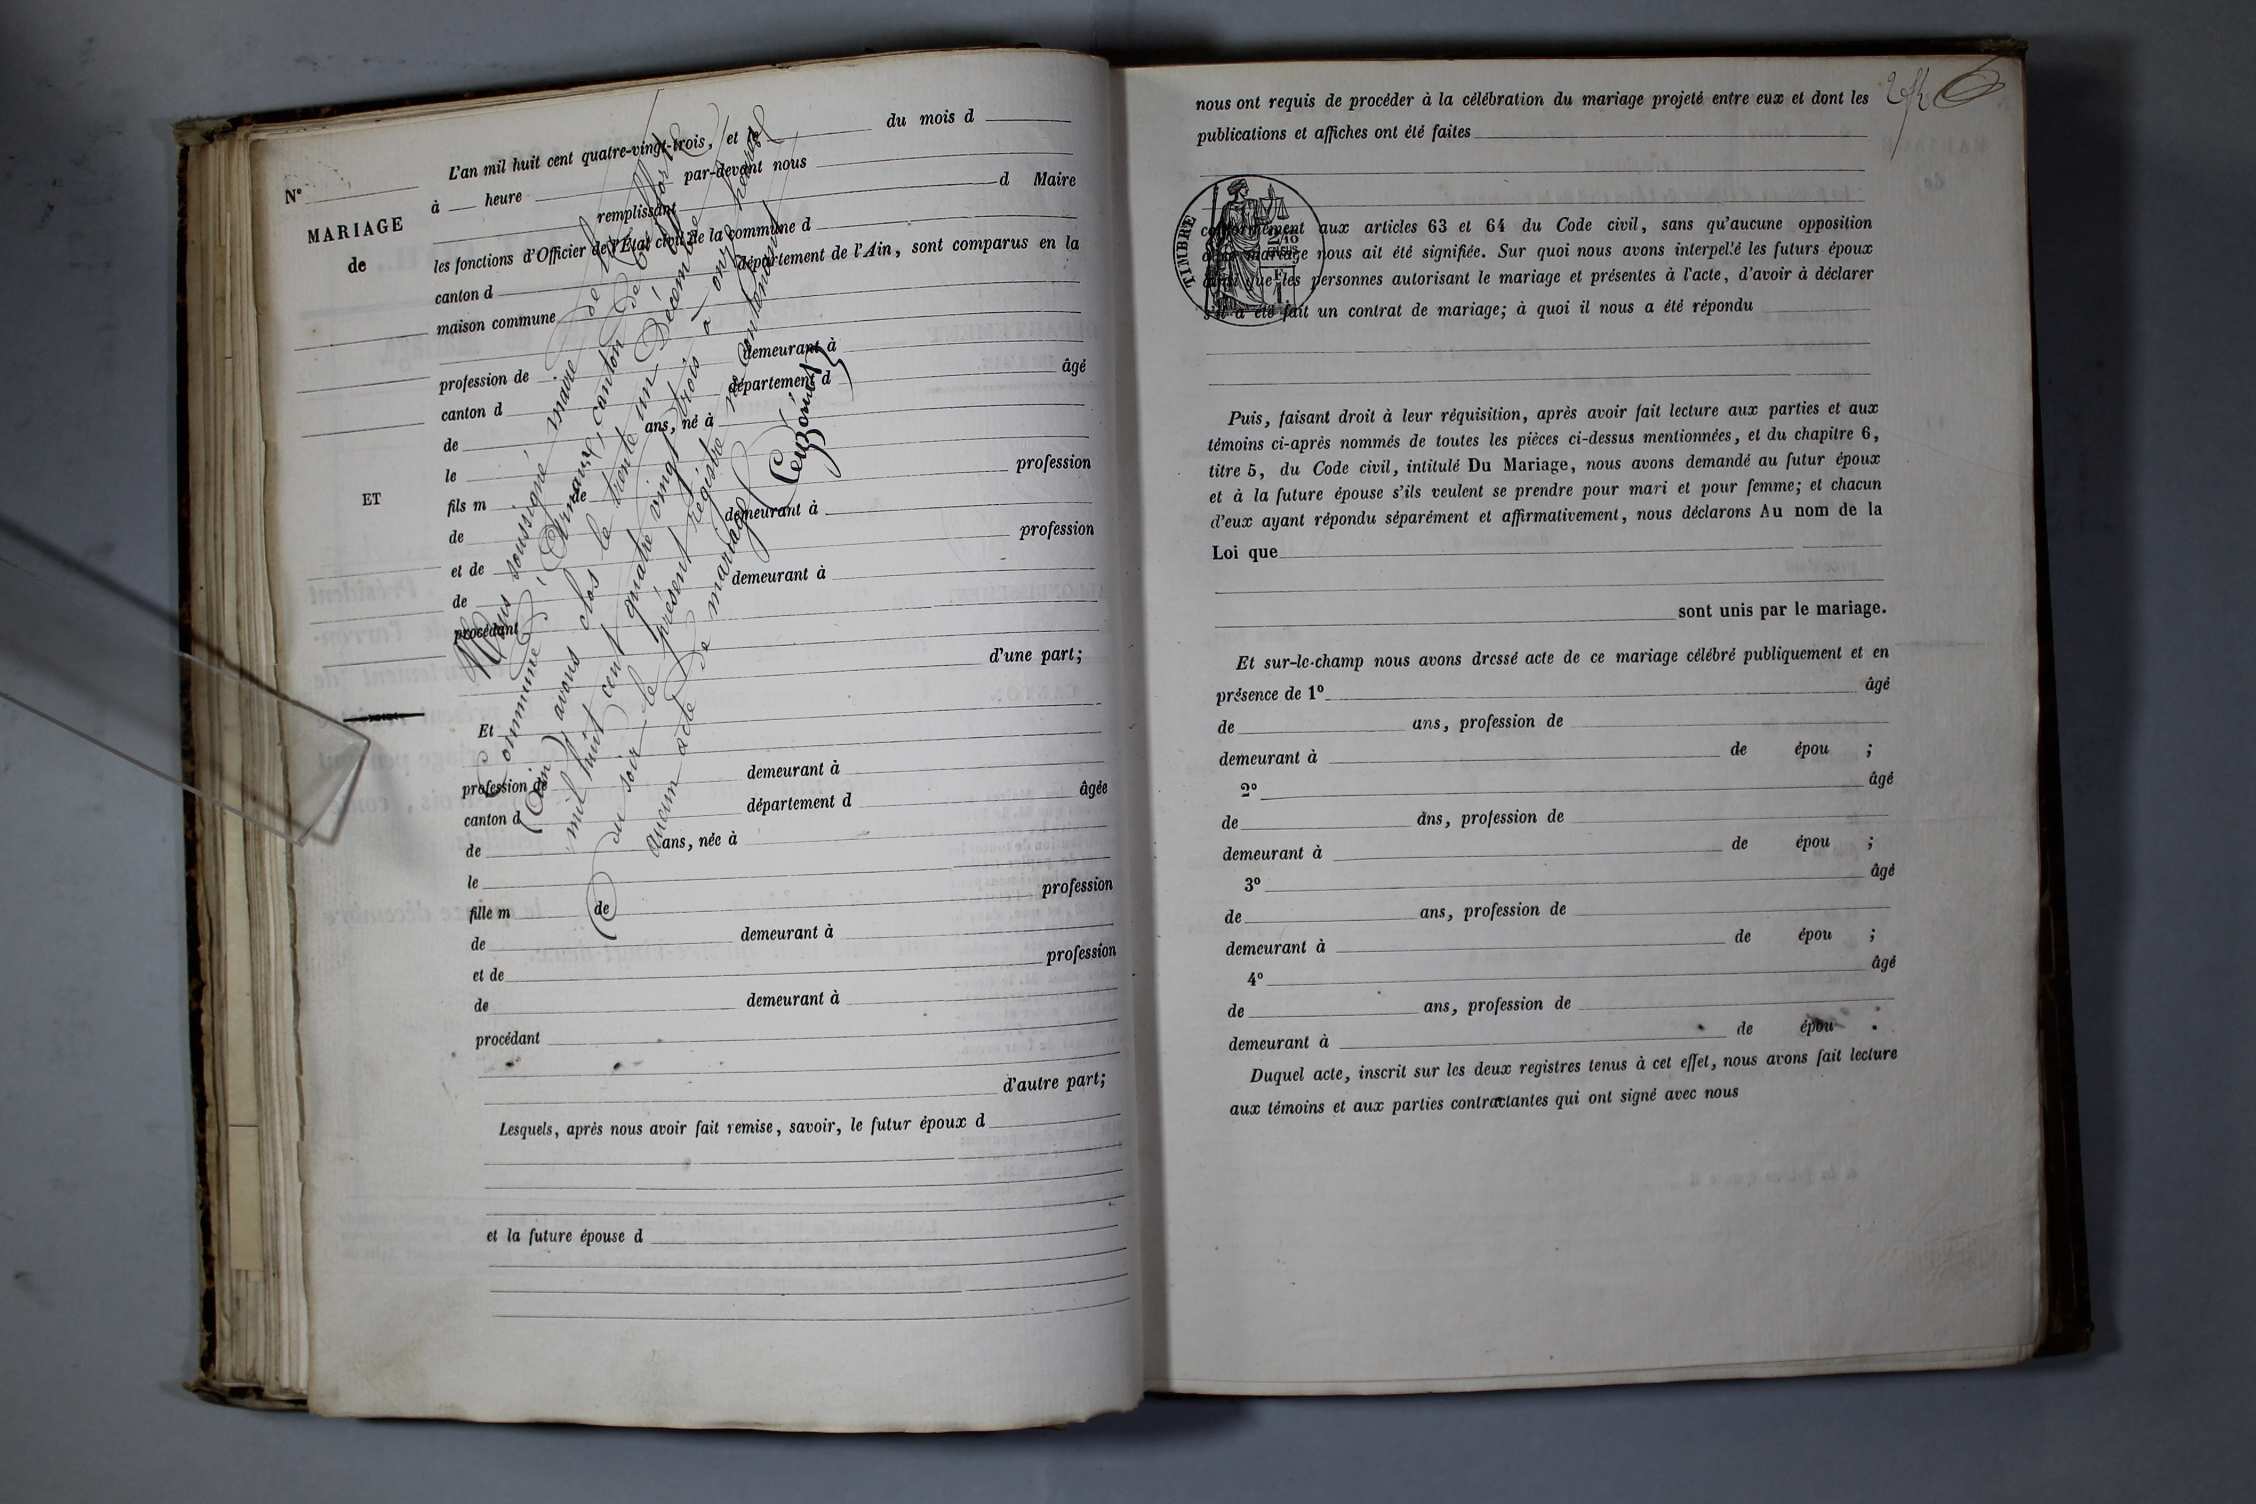 N°
MARIAGE
de
ET
L'an mil huit cent quatre-vingt-trois, et le du mois d
à heure par-devant nous
remplissant d Maire
les fonctions d'Officier de l'État civil de la commune d
canton d département de l'Ain, sont comparus en la
maison commune
profession de demeurant à
canton d département d âgé
de ans, né à
le
fils m de profession
de demeurant à
et de profession
de demeurant à
procédant
d'une part;
Et
profession de demeurant à
canton d département d âgée
de ans, née à
le
fille m de profession
de demeurant à
et de profession
de demeurant à
procédant
d'autre part;
Lesquels, après nous avoir fait remise, savoir, le futur époux d
et la future épouse d
Nous soussigné maire de la
Commune d' canton de
(Ain) avons clos le trente un Décembre
mil huit cent quatre vingt trois à onze heures
du soir le présent registre ne contenant
aucun acte de mariage
nous ont requis de procéder à la célébration du mariage projeté entre eux et dont les
publications et affiches ont été faites
TIMBRE
2/10
conformément aux articles 63 et 64 du Code civil, sans qu'aucune opposition
à ce mariage nous ait été signifiée. Sur quoi nous avons interpellé les futurs époux
ainsi que les personnes autorisant le mariage et présentes à l'acte, d'avoir à déclarer
s'il a été fait un contrat de mariage; à quoi il nous a été répondu
Puis, faisant droit à leur réquisition, après avoir fait lecture aux parties et aux
témoins ci-après nommés de toutes les pièces ci-dessus mentionnées, et du chapitre 6,
titre 5, du Code civil, intitulé Du Mariage, nous avons demandé au futur époux
et à la future épouse s'ils veulent se prendre pour mari et pour femme; et chacun
d'eux ayant répondu séparément et affirmativement, nous déclarons Au nom de la
Loi que
sont unis par le mariage.
Et sur-le-champ nous avons dressé acte de ce mariage célébré publiquement et en
présence de 1° âgé
de ans, profession de
demeurant à de épou ;
2° âgé
de ans, profession de
demeurant à de épou ;
3° âgé
de ans, profession de
demeurant à de épou ;
4° âgé
de ans, profession de
demeurant à de épou .
Duquel acte, inscrit sur les deux registres tenus à cet effet, nous avons fait lecture
aux témoins et aux parties contractantes qui ont signé avec nous